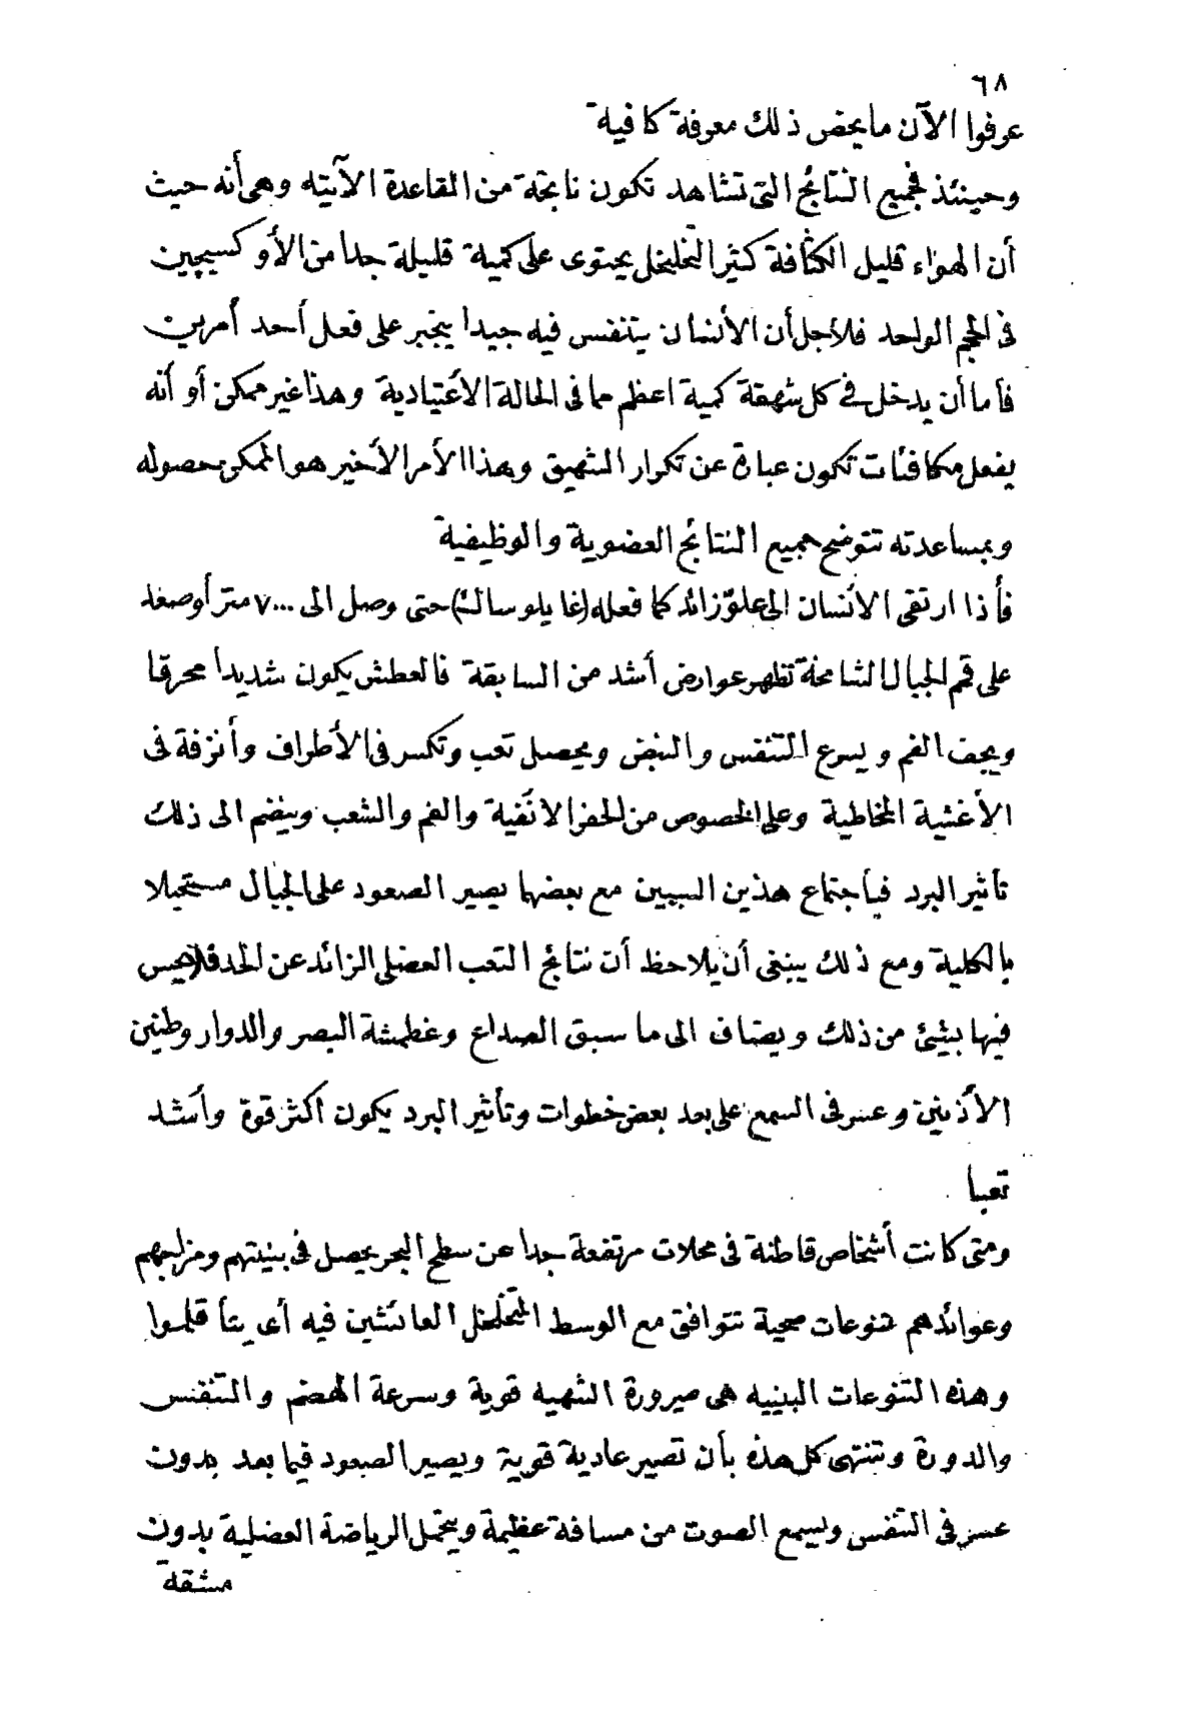 ٦٨
عرفوا الآن ما يخص ذلك معرفة كافية
وحينئذ فجميع النتائج التى تشاهد تكون ناتجة من القاعدة الآتيه وهى أنه حيث
أن الهواء قليل الكثافة كثير التخلخل يحتوى على كمية قليلة جدا من الأوكسيچين
فى الحجم الواحد فلأجل أن الأنسان يتنفس فيه جيدا يجبر على فعل أحد أمرين
فأما أن يدخل فى كل شهقة كمية اعظم مما فى الحالة الأعتيادية وهذا غير ممكن أو أنه
يفعل مكافئات تكون عبارة عن تكرار الشهيق وهذا الأمر الأخير هو الممكن حصوله
وبمساعدته تتوضح جميع النتائج العضوية والوظيفية
فأذا ارتقى الأنسان الى علو زائد كما فعله (غايلوساك) حتى وصل الى ٧٠٠٠ متر أوصعد
على قمم الجبال الشامخة تظهر عوارض أشد من السابقة فالعطش يكون شديدا محرقا
ويجف الفم ويسرع التنفس والنبض ويحصل تعب وتكسر فى الأطراف وأنزفة فى
الأغشية المخاطية وعلى الخصوص من الحفر الانفية والفم والشعب وينضم الى ذلك
تأثير البرد فبأجتماع هذين السببين مع بعضهما يصير الصعود على الجبال مستحيلا
بالكلية ومع ذلك ينبغى أن يلاحظ أن نتائج التعب العضلى الزائد عن الحد فلا يحس
فيها بشئ من ذلك ويضاف الى ما سبق الصداع وغطمشة البصر والدوار وطنين
الأذنين وعسر فى السمع على بعد بعض خطوات وتأثير البرد يكون اكثر قوة وأشد
تعبا
ومتى كانت أشخاص قاطنة فى محلات مرتفعة جدا عن سطح البحر يحصل فى بنيتهم ومزاجهم
وعوائدهم تنوعات صحية تتوافق مع الوسط المتخلخل العائشين فيه أى يتأقلموا
وهذه التنوعات البنييه هى صيرورة الشهيه قوية وسرعة الهضم والتنفس
والدورة وتنتهى كل هذه بأن تصير عادية قوية ويصير الصعود فيما بعد بدون
عسر فى التنفس ويسمع الصوت من مسافة عظيمة ويتحمل الرياضة العضلية بدون
مشقة